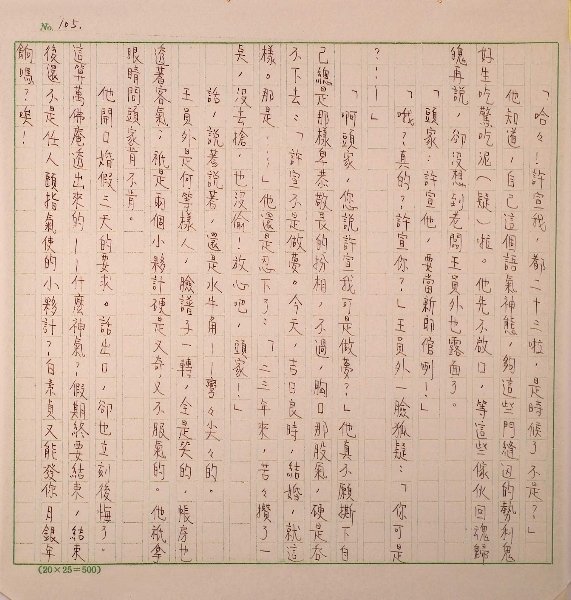 No. 105.
「哈々！許宣我，都二十三啦，是時候了不是？」
他知道，自己這個語氣神態，夠這些門縫邊的勢利鬼
好生吃驚吃犯（疑）啦。他先不啟口，等這些傢伙回魂歸
魄再說，卻沒想到老闆王員外也露面了。
「頭家，許宣他，要當新郎倌咧！」
「哦？真的？許宣你？」王員外一臉狐疑：「你可是
？——」
「啊頭家，您說許宣我可是做夢？」他真不願撕下自
己總是那樣息恭敬畏的扮相，不過，胸口那股氣，硬是吞
不下去：「許宣不是做夢。今天，吉日良時，結婚，就這
樣。那是……」他還是忍下了：「二三年來，苦々攢了一
點，沒去搶，也沒偷！放心吧，頭家！」
話，說著說著，還是水牛角——彎々尖々的。
王員外是何等樣人，臉譜子一轉，全是笑的，帳房也
透著客氣；祇是兩個小夥計硬是又奇又不服氣的。他祇拿
眼睛問頭家肯不肯。
他開口婚假三天的要求。話出口，卻也立刻後悔了。
這算萬佛庵透出來的——什麼神氣？假期終要結束，結束
後還不是任人頤指氣使的小夥計？白素貞又能發你月銀年
餉嗎？唉！
(20×25=500)